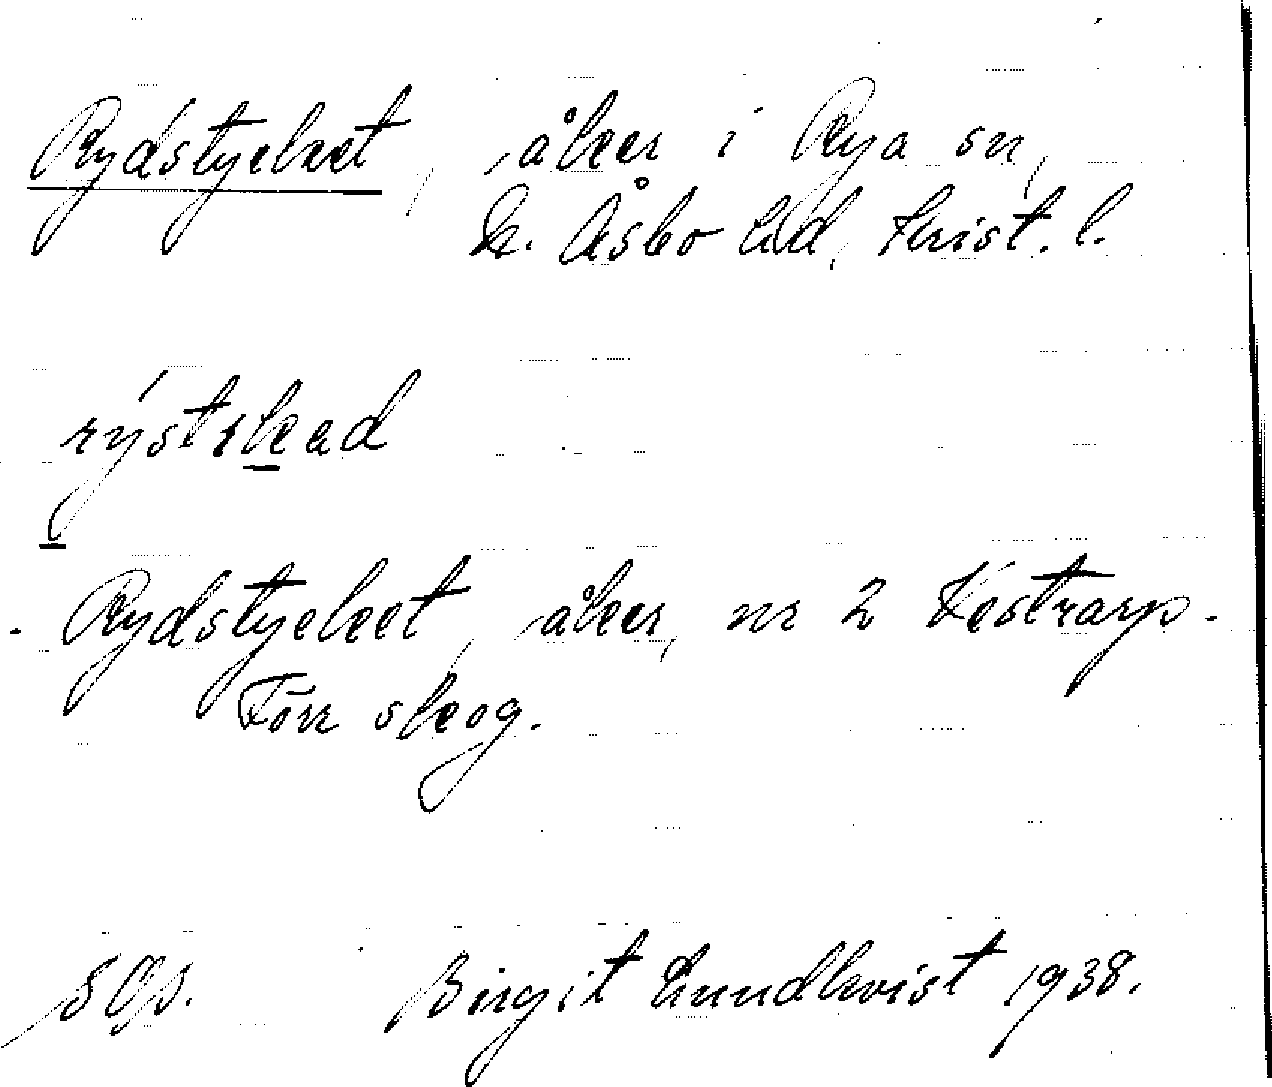 Rydstycket, åker i Rya sn,
N. Åsbo hd, Krist. l.
rýstekad
Rydstycket, åker, nr 2 Västrarp.
Förr skog.
SOp. Birgit Lundkvist 1938.